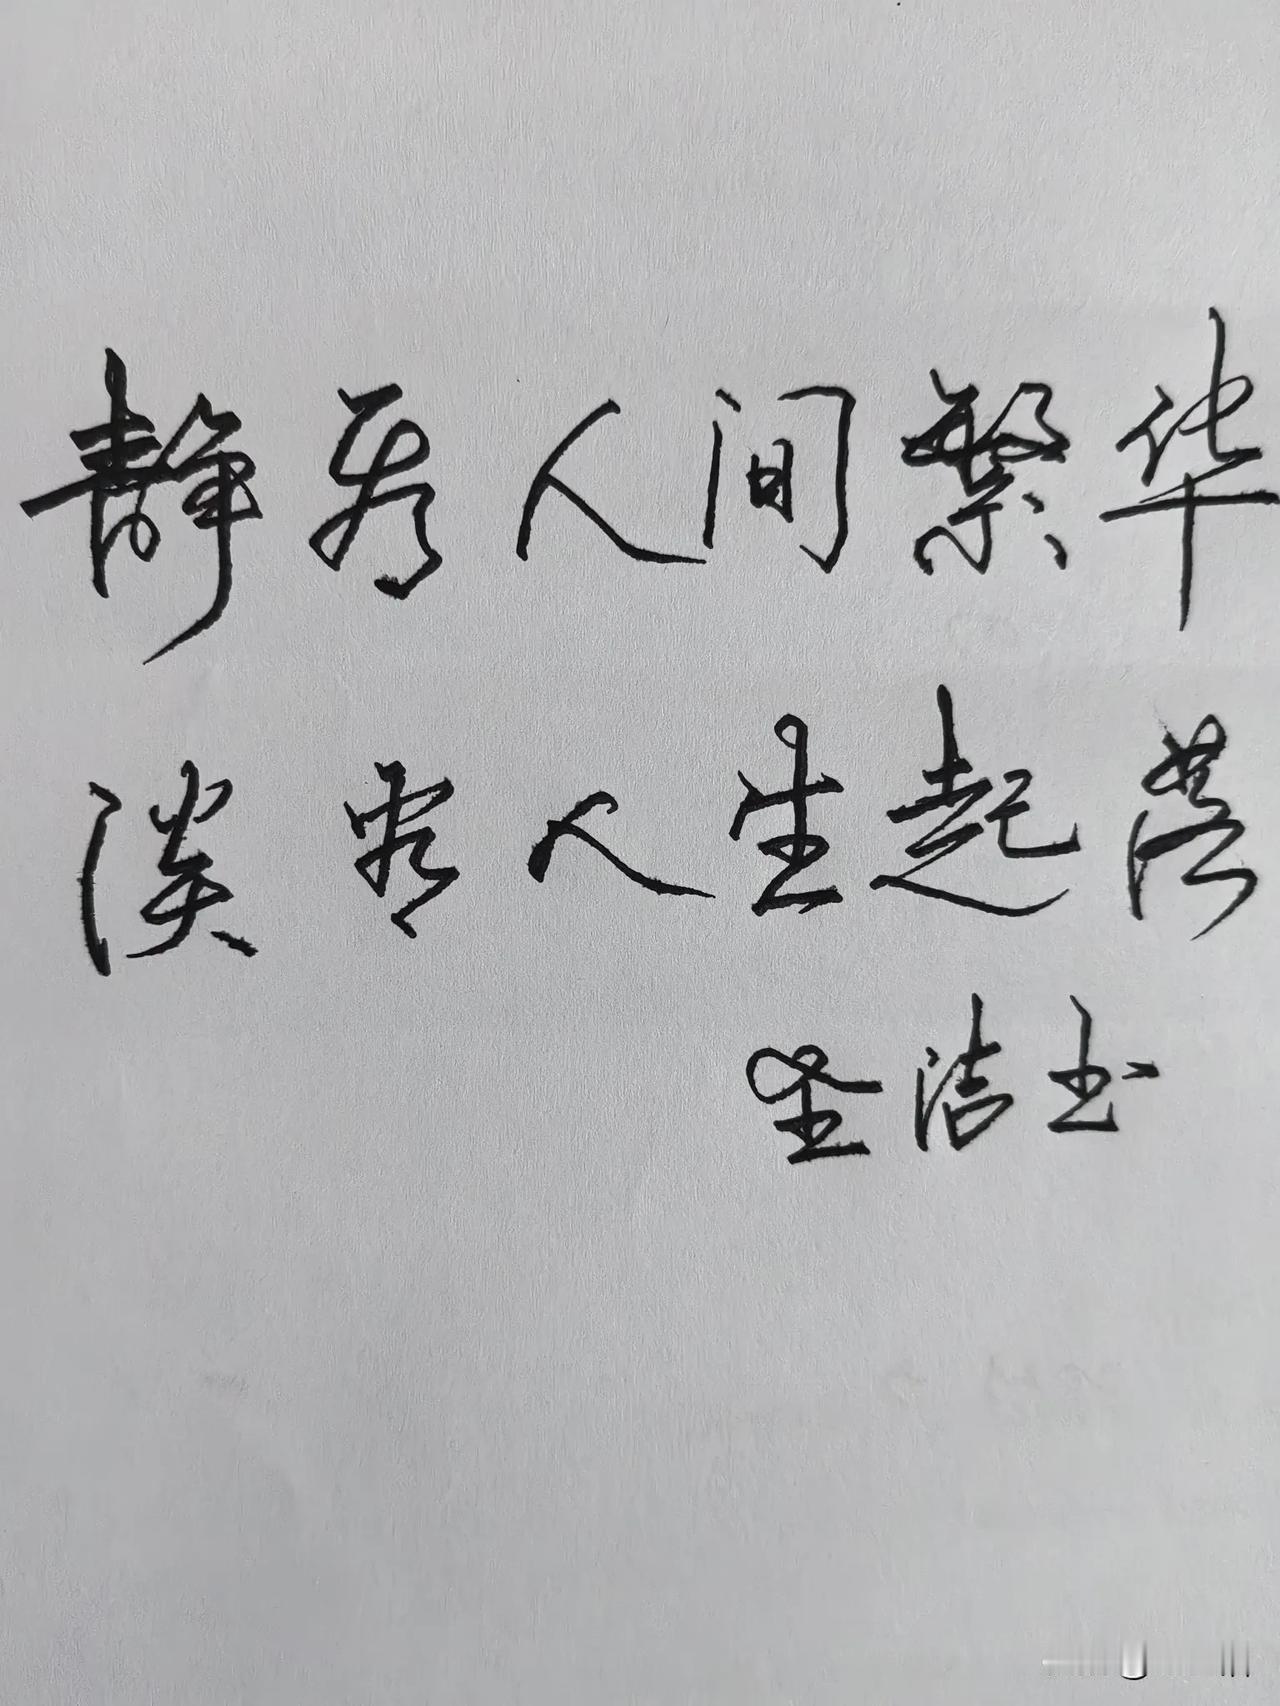 静看人间繁华
淡看人生起落
圣洁书